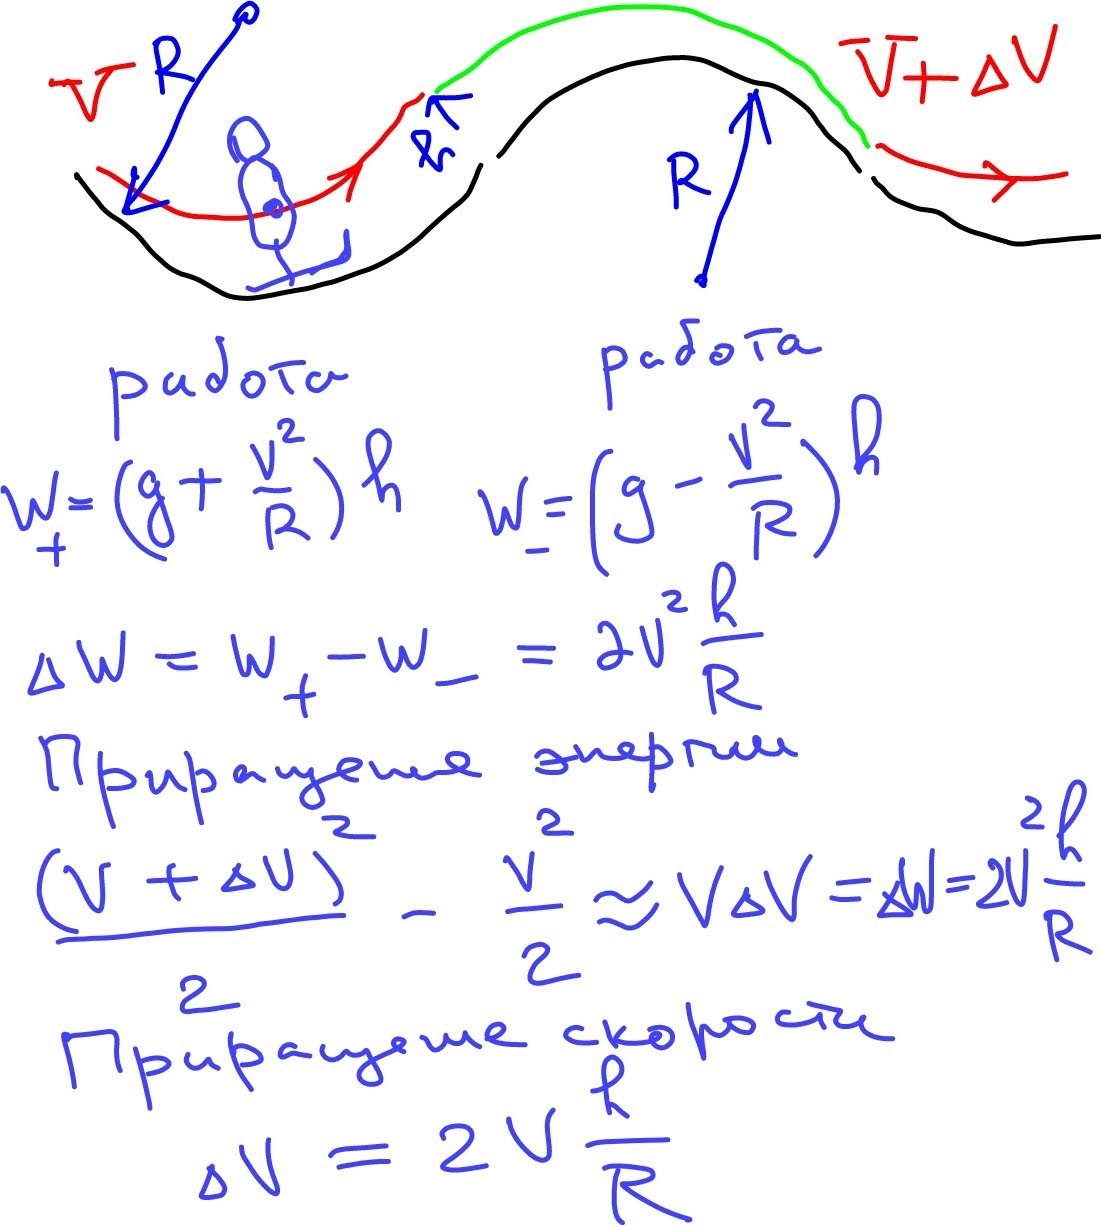 V R h R V + ΔV
работа работа
W₊ = (g + V²/R) h W₋ = (g - V²/R) h
ΔW = W₊ - W₋ = 2V² h/R
Приращение энергии
(V + ΔV)²/2 - V²/2 ≈ VΔV = ΔW = 2V² h/R
Приращение скорости
ΔV = 2V h/R